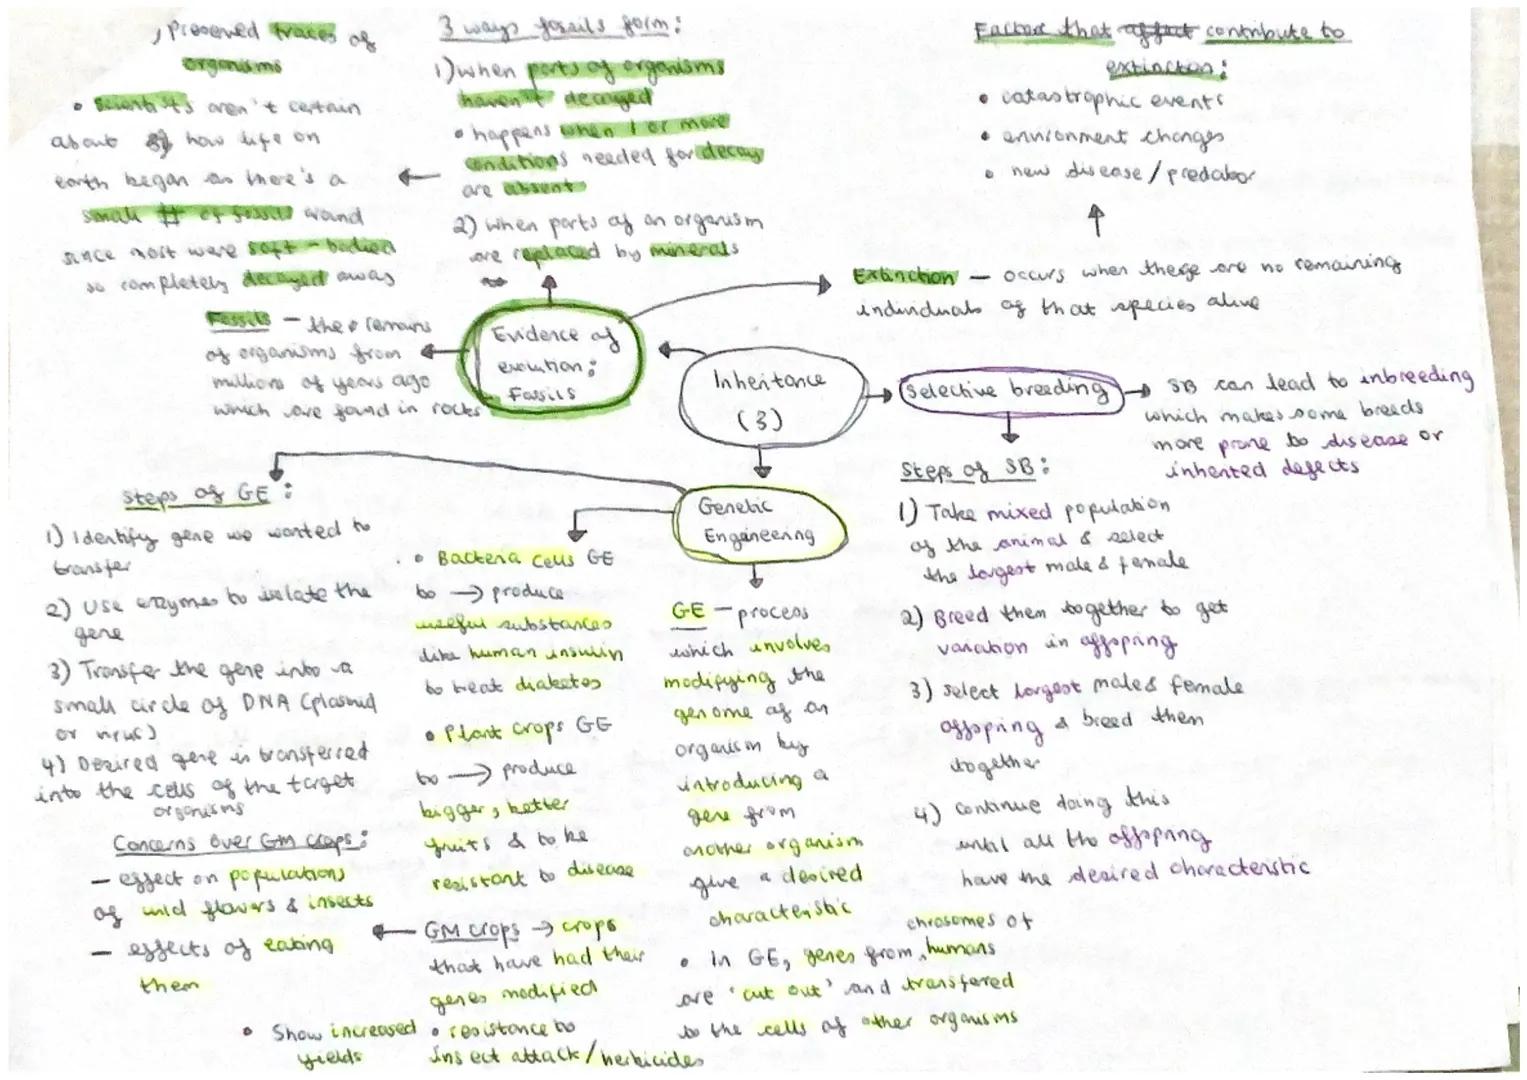 3 ways fossils form:
1) when parts of organisms
haven't decayed
• happens when 1 or more
conditions needed for decay
are absent
2) when parts of an organism
are replaced by minerals
, preserved traces of
organisms
• Scientists aren't certain
about how life on
earth began as there's a
small # of fossils around
since most were soft-bodied
so completely decayed away
Factors that affect contribute to
extinction:
• catastrophic events
• environment changes
• new disease/predator
Extinction — occurs when these are no remaining
individuals of that species alive
Evidence of
evolution:
Fossils
Fossils — the remains
of organisms from
millions of years ago
which are found in rocks
Inheritance
(3)
Selective breeding
SB can lead to inbreeding
which makes some breeds
more prone to disease or
inherited defects
Steps of SB:
1) Take mixed population
of the animal & select
the largest male & female
2) Breed them together to get
variation in offspring
3) select largest male & female
offspring & breed them
together
4) continue doing this
until all the offspring
have the desired characteristic
Genetic
Engineering
Steps of GE:
1) Identify gene we wanted to
transfer
2) Use enzymes to isolate the
gene
3) Transfer the gene into a
small circle of DNA (plasmid
or virus)
4) Desired gene is transferred
into the cells of the target
organisms
• Bacteria cells GE
to → produce
useful substances
like human insulin
to treat diabetes
• Plant crops GE
to → produce
bigger, better
fruits & to be
resistant to disease
GE — process
which involves
modifying the
genome of an
organism by
introducing a
gene from
another organism
give a desired
characteristic
chrosomes of
• In GE, genes from, humans
are 'cut out' and transfered
to the cells of other organisms
GM crops → crops
that have had their
genes modified
• resistance to
insect attack/herbicides
• Show increased
yields
Concerns over GM crops:
— effect on populations
of wild flowers & insects
— effects of eating
them